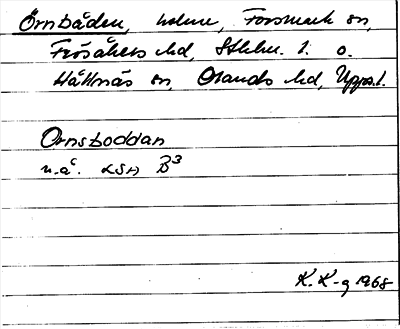 Örnbåden, holme, Forsmark sn,
Frösåkers hd, Sthlm. l. o.
Hållnäs sn, Olands hd, Upps. l.
Ornsboddan
n.å. LSA B³
K. K-g 1968